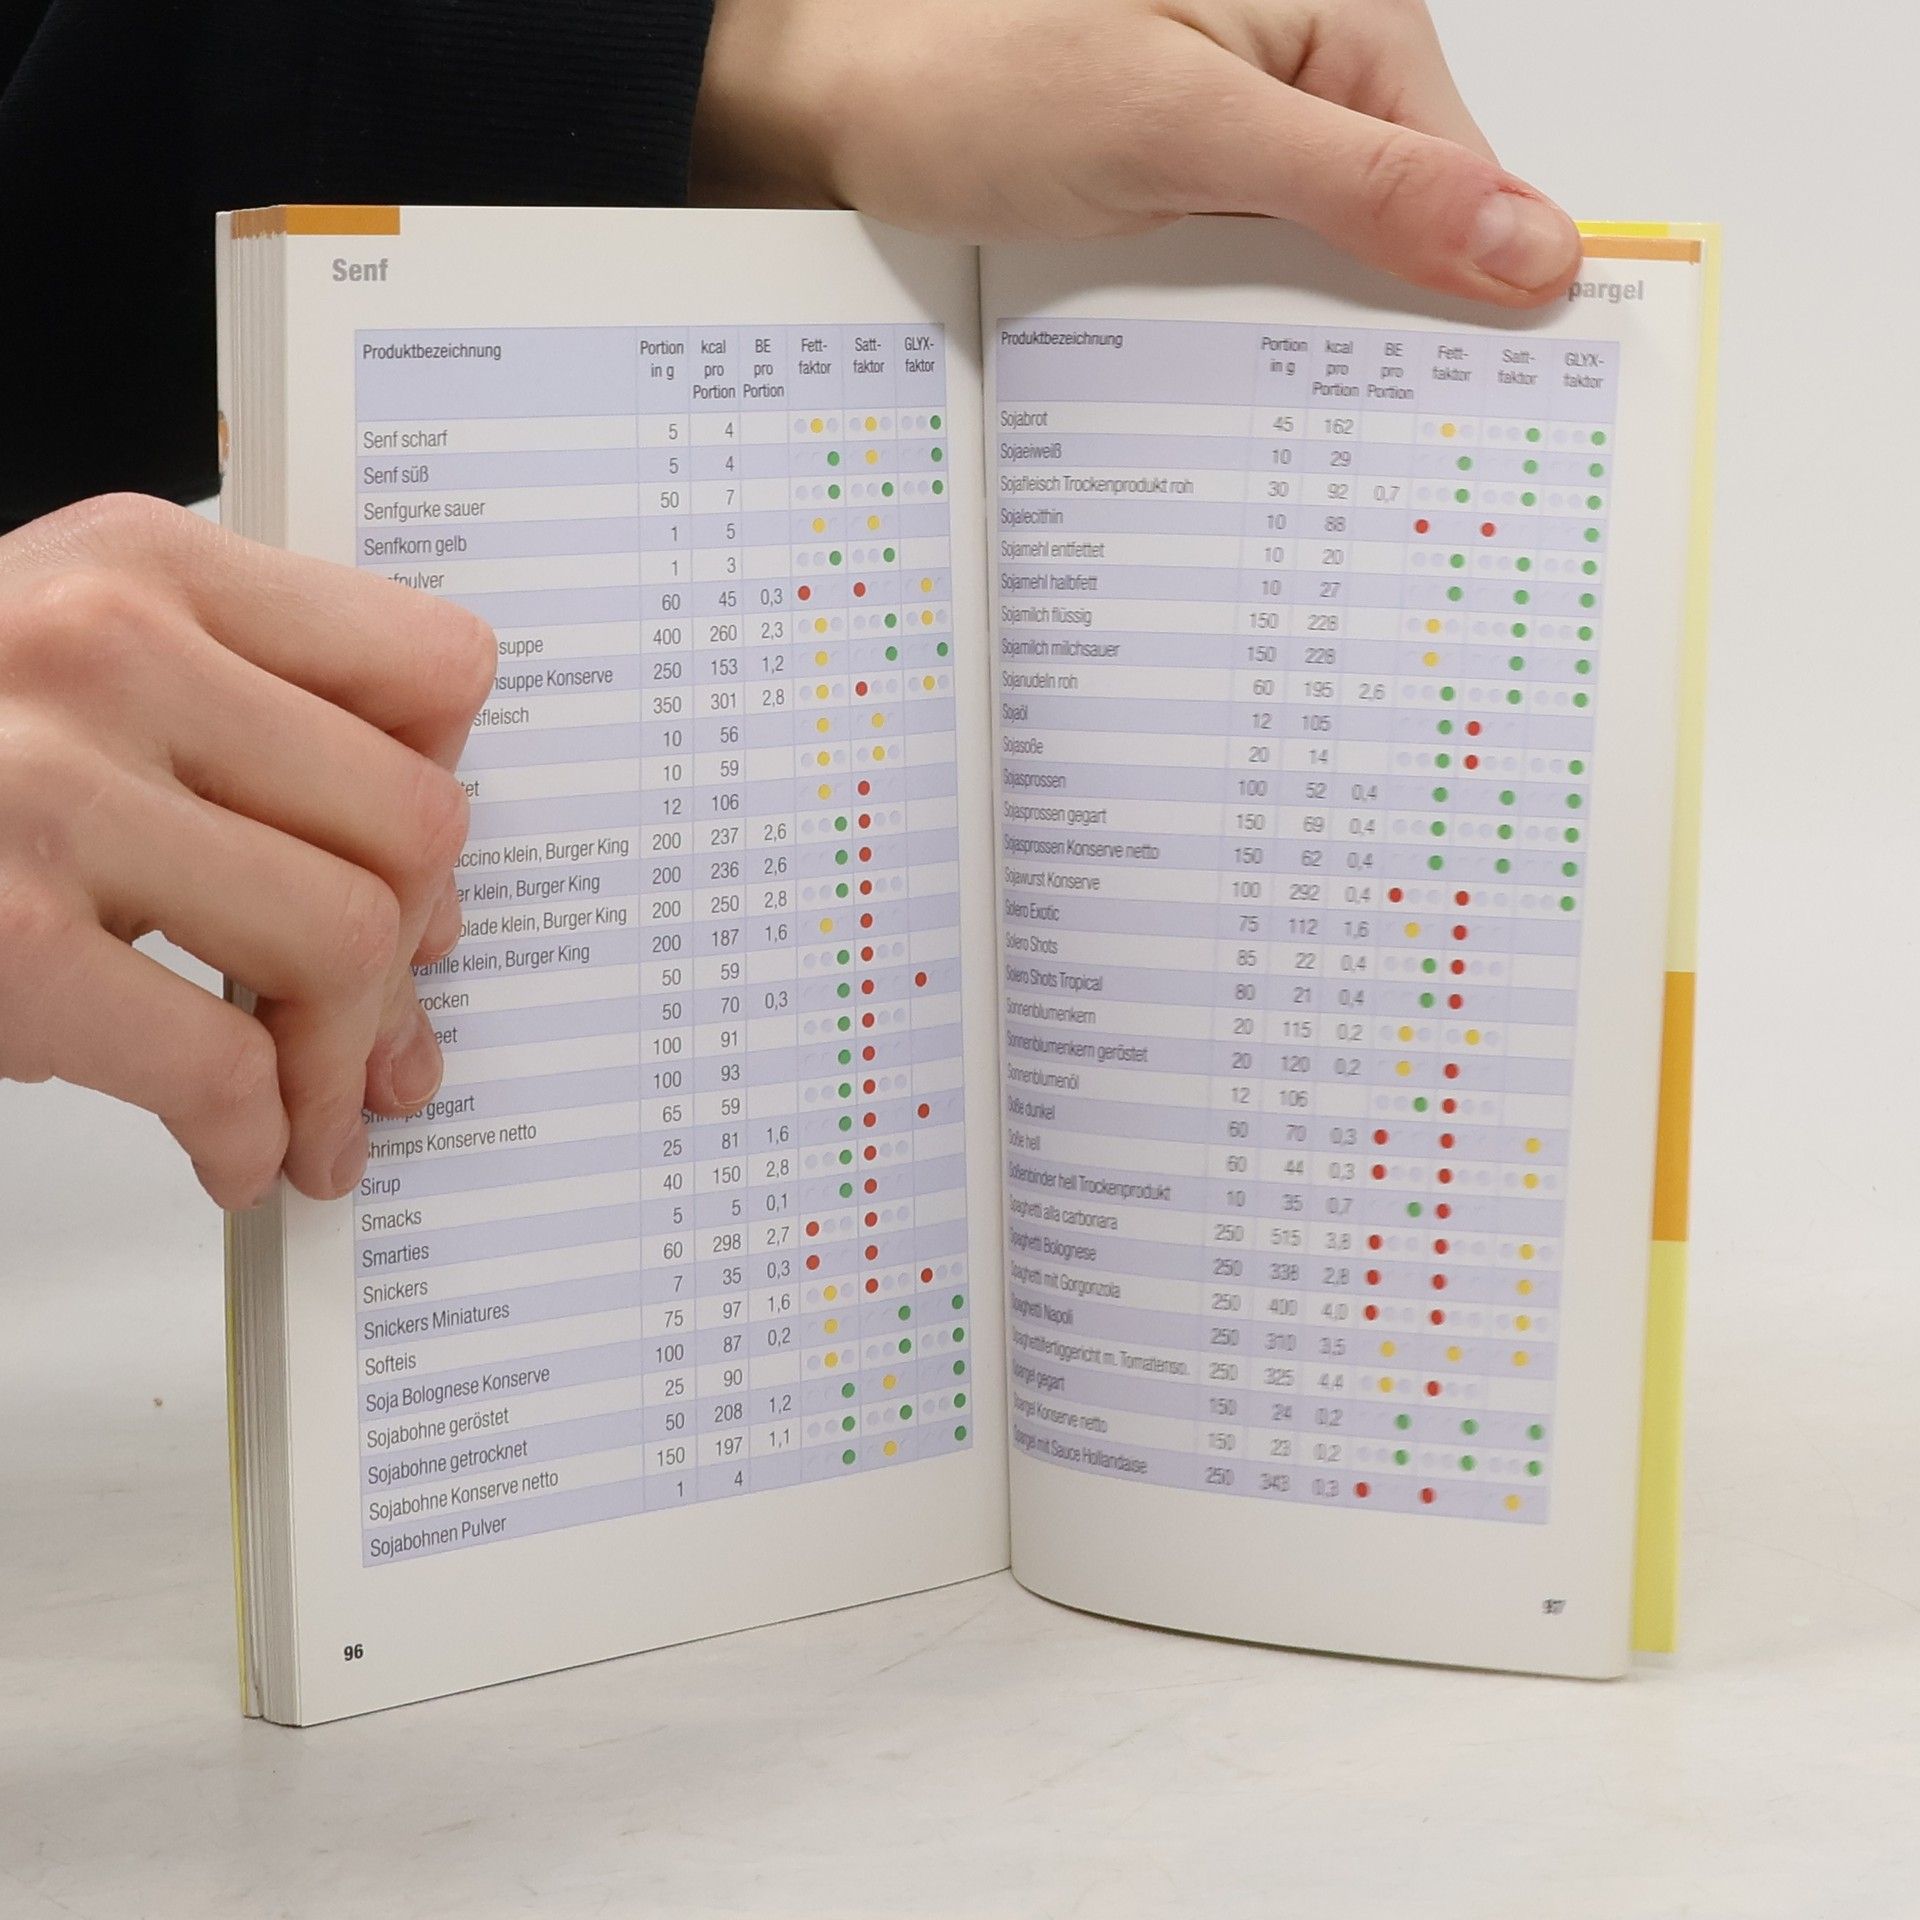 Senf
Produktbezeichnung Portion in g kcal pro Portion BE pro Portion Fett-faktor Satt-faktor GLYX-faktor
Senf scharf 5 4
Senf süß 5 4
Senfgurke sauer 50 7
Senfkorn gelb 1 5
fpulver 1 3
60 45 0,3
suppe 400 260 2,3
nsuppe Konserve 250 153 1,2
sfleisch 350 301 2,8
10 56
tet 10 59
12 106
ccino klein, Burger King 200 237 2,6
er klein, Burger King 200 236 2,6
olade klein, Burger King 200 250 2,8
vanille klein, Burger King 200 187 1,6
rocken 50 59
eet 50 70 0,3
100 91
Shrimps gegart 100 93
Shrimps Konserve netto 65 59
Sirup 25 81 1,6
Smacks 40 150 2,8
Smarties 5 5 0,1
Snickers 60 298 2,7
Snickers Miniatures 7 35 0,3
Softeis 75 97 1,6
Soja Bolognese Konserve 100 87 0,2
Sojabohne geröstet 25 90
Sojabohne getrocknet 50 208 1,2
Sojabohne Konserve netto 150 197 1,1
Sojabohnen Pulver 1 4
96
pargel
Produktbezeichnung Portion in g kcal pro Portion BE pro Portion Fett-faktor Satt-faktor GLYX-faktor
Sojabrot 45 162
Sojaeiweiß 10 29
Sojafleisch Trockenprodukt roh 30 92 0,7
Sojalecithin 10 88
Sojamehl entfettet 10 20
Sojamehl halbfett 10 27
Sojamilch flüssig 150 228
Sojamilch milchsauer 150 228
Sojanudeln roh 60 195 2,6
Sojaöl 12 105
Sojasoße 20 14
Sojasprossen 100 52 0,4
Sojasprossen gegart 150 69 0,4
Sojasprossen Konserve netto 150 62 0,4
Sojawurst Konserve 100 292 0,4
Solero Exotic 75 112 1,6
Solero Shots 85 22 0,4
Solero Shots Tropical 80 21 0,4
Sonnenblumenkern 20 115 0,2
Sonnenblumenkern geröstet 20 120 0,2
Sonnenblumenöl 12 106
Soße dunkel 60 70 0,3
Soße hell 60 44 0,3
Soßenbinder hell Trockenprodukt 10 35 0,7
Spaghetti alla carbonara 250 515 3,8
Spaghetti Bolognese 250 338 2,8
Spaghetti mit Gorgonzola 250 400 4,0
Spaghetti Napoli 250 310 3,5
Spaghettifertiggericht m. Tomatenso. 250 325 4,4
Spargel gegart 150 24 0,2
Spargel Konserve netto 150 23 0,2
Spargel mit Sauce Hollandaise 250 343 0,3
97